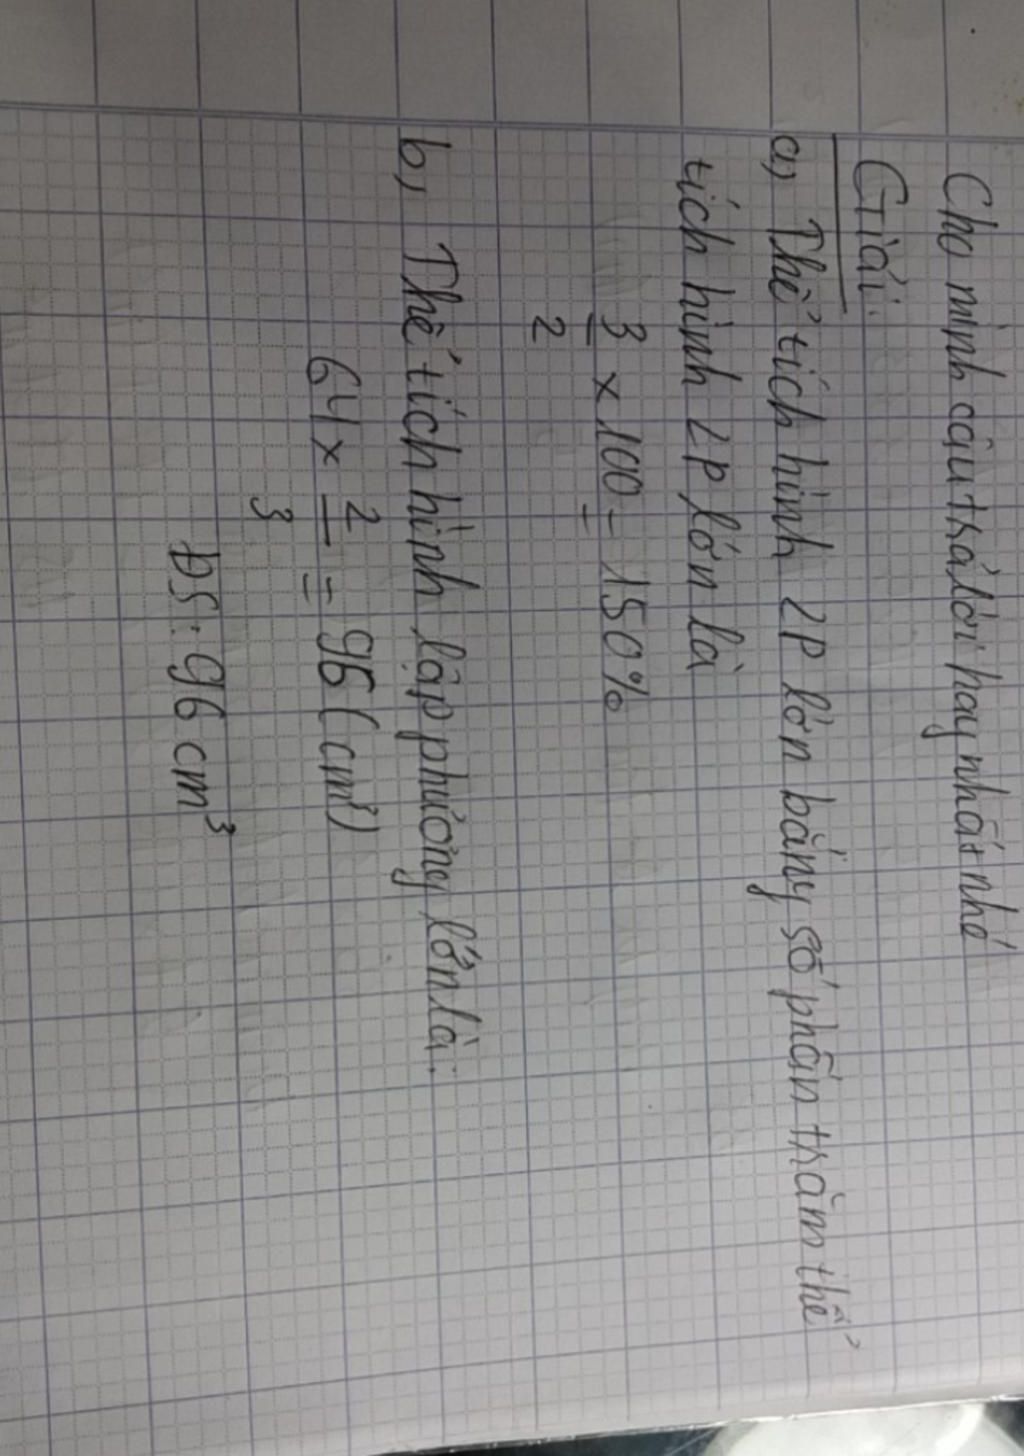 Cho mình câu trả lời hay nhất nhé
Giải:
a, Thể tích hình LP lớn bằng số phần trăm thể
tích hình LP lớn là
3/2 × 100 = 150%
b, Thể tích hình lập phương lớn là:
64 × 2/3 = 96 (cm³)
ĐS: 96 cm³